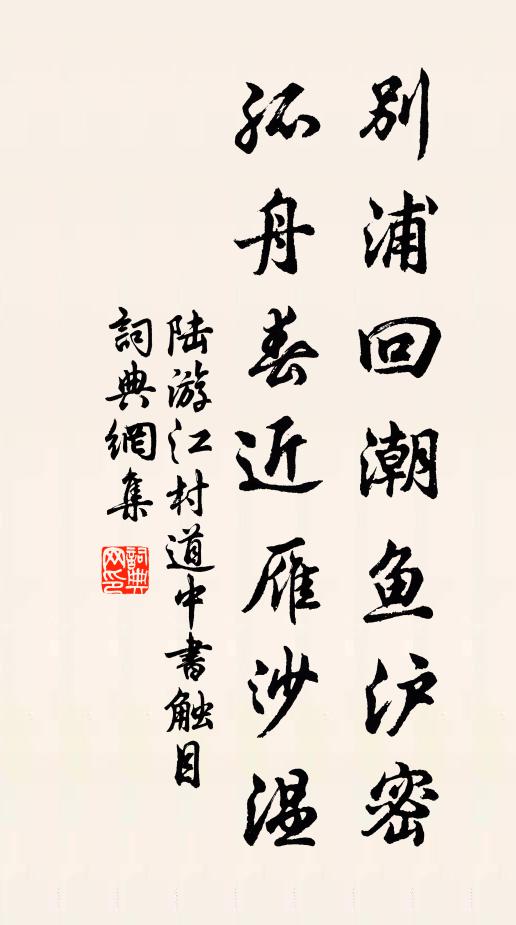 別浦回潮鱼沪密
孤舟春近雁沙温
陆游江村道中書触目
詞典網集
詞典网印